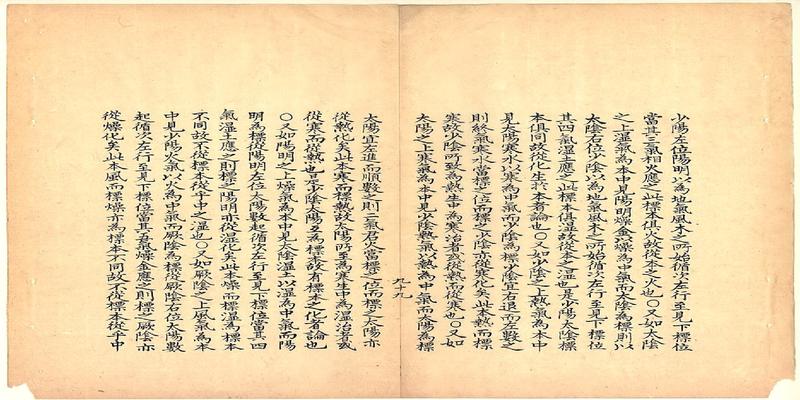 少陽左位陽明以為地氣風木之所始循次左行至見下標位
當其三氣相火應之此標本俱火故從本之火也〇又如太陰
之上湿氣為本中見陽明燥金以燥為中氣而太陰為標則以
太陰右位少陰以為地氣風木之所始循次左行至見下標位
其四氣湿土應之此標本俱湿故從本之湿也是少陽太陰標
本俱同故從化生於本者論也〇又如少陰之上熱氣為本中
見太陽寒水以寒為中氣而少陰為標少陰宜右退而左數之
則終氣寒水當標之位而標之少陰亦從寒化矣此本熱而標
寒故少陰所至為熱生中為寒治者或從熱而從寒也〇又如
太陽之上寒氣為本中見少陰熱氣以熱為中氣而太陽為標
九十九
太陽宜左進而順數之則二氣君火當標之位而標之太陽亦
從熱化矣此本寒而標熱故太陽所至為寒生中為温治者或
從寒而從熱也是少陰太陽互為標本故有標本之化者論也
〇又如陽明之上燥氣為本中見太陰湿土以湿為中氣而陽
明為標從陽明左位太陽數起循次左行至見下標位當其四
氣湿土應之則標之陽明亦從湿化矣此本燥而標湿為標本
不同故不從標本從乎中之湿也〇又如厥陰之上風氣為本
中見少陽火氣以火為中氣而厥陰為標從厥陰右位太陽數
起循次左行至見下標位當其五氣燥金應之則標之厥陰亦
從燥化矣此本風而標燥亦為標本不同故不從標本從乎中